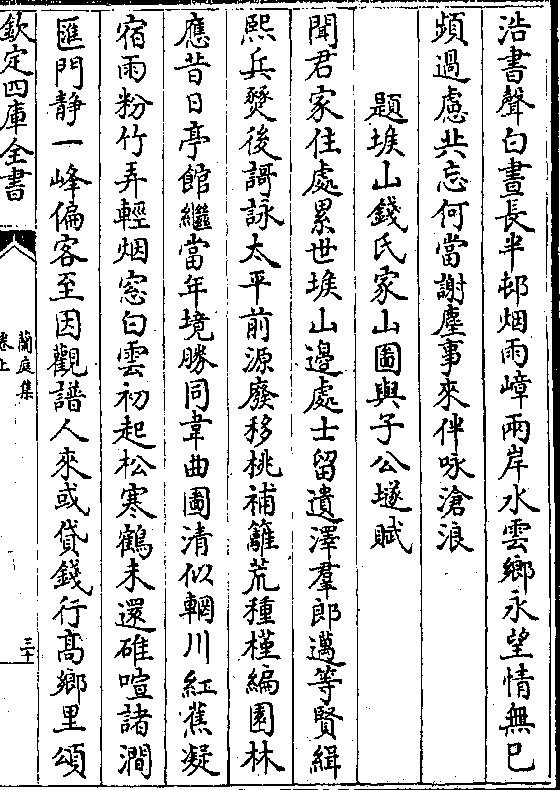 浩書聲白晝長半邨烟雨嶂兩岸水雲鄉永望情無已
頻過慮共忘何當謝塵事來伴咏滄浪
題埃山錢氏家山圖與子公墜賦
聞君家住處累世埃山邊處士留遺澤羣郎邁等賢緝
熙兵燹後謌詠太平前源廢移桃補籬荒種槿編園林
應昔日亭館繼當年境勝同韋曲圖清似輞川紅蕉凝
宿雨粉竹弄輕烟窓白雲初起松寒鶴未還碓喧諸澗
匯門静一峰偏客至因觀譜人來或貸錢行髙鄉里頌
欽定四庫全書
蘭庭集
卷上
三十